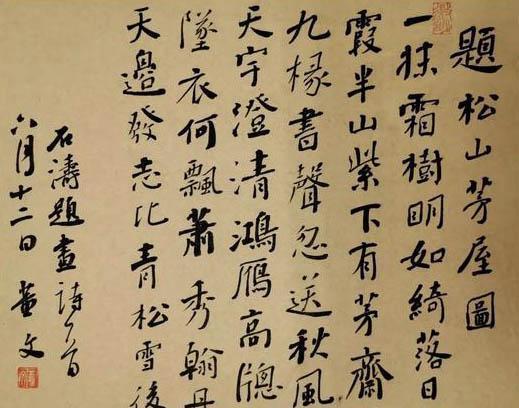 題松山茅屋圖
一抹霜樹明如綺落日
霞半山紫下有茅齋
九椽書聲忽送秋風
天宇澄清鴻雁高牕
墜衣何飄蕭秀翰
天邊發志比青松雪後
石濤題畫詩一首
六月十二日 文